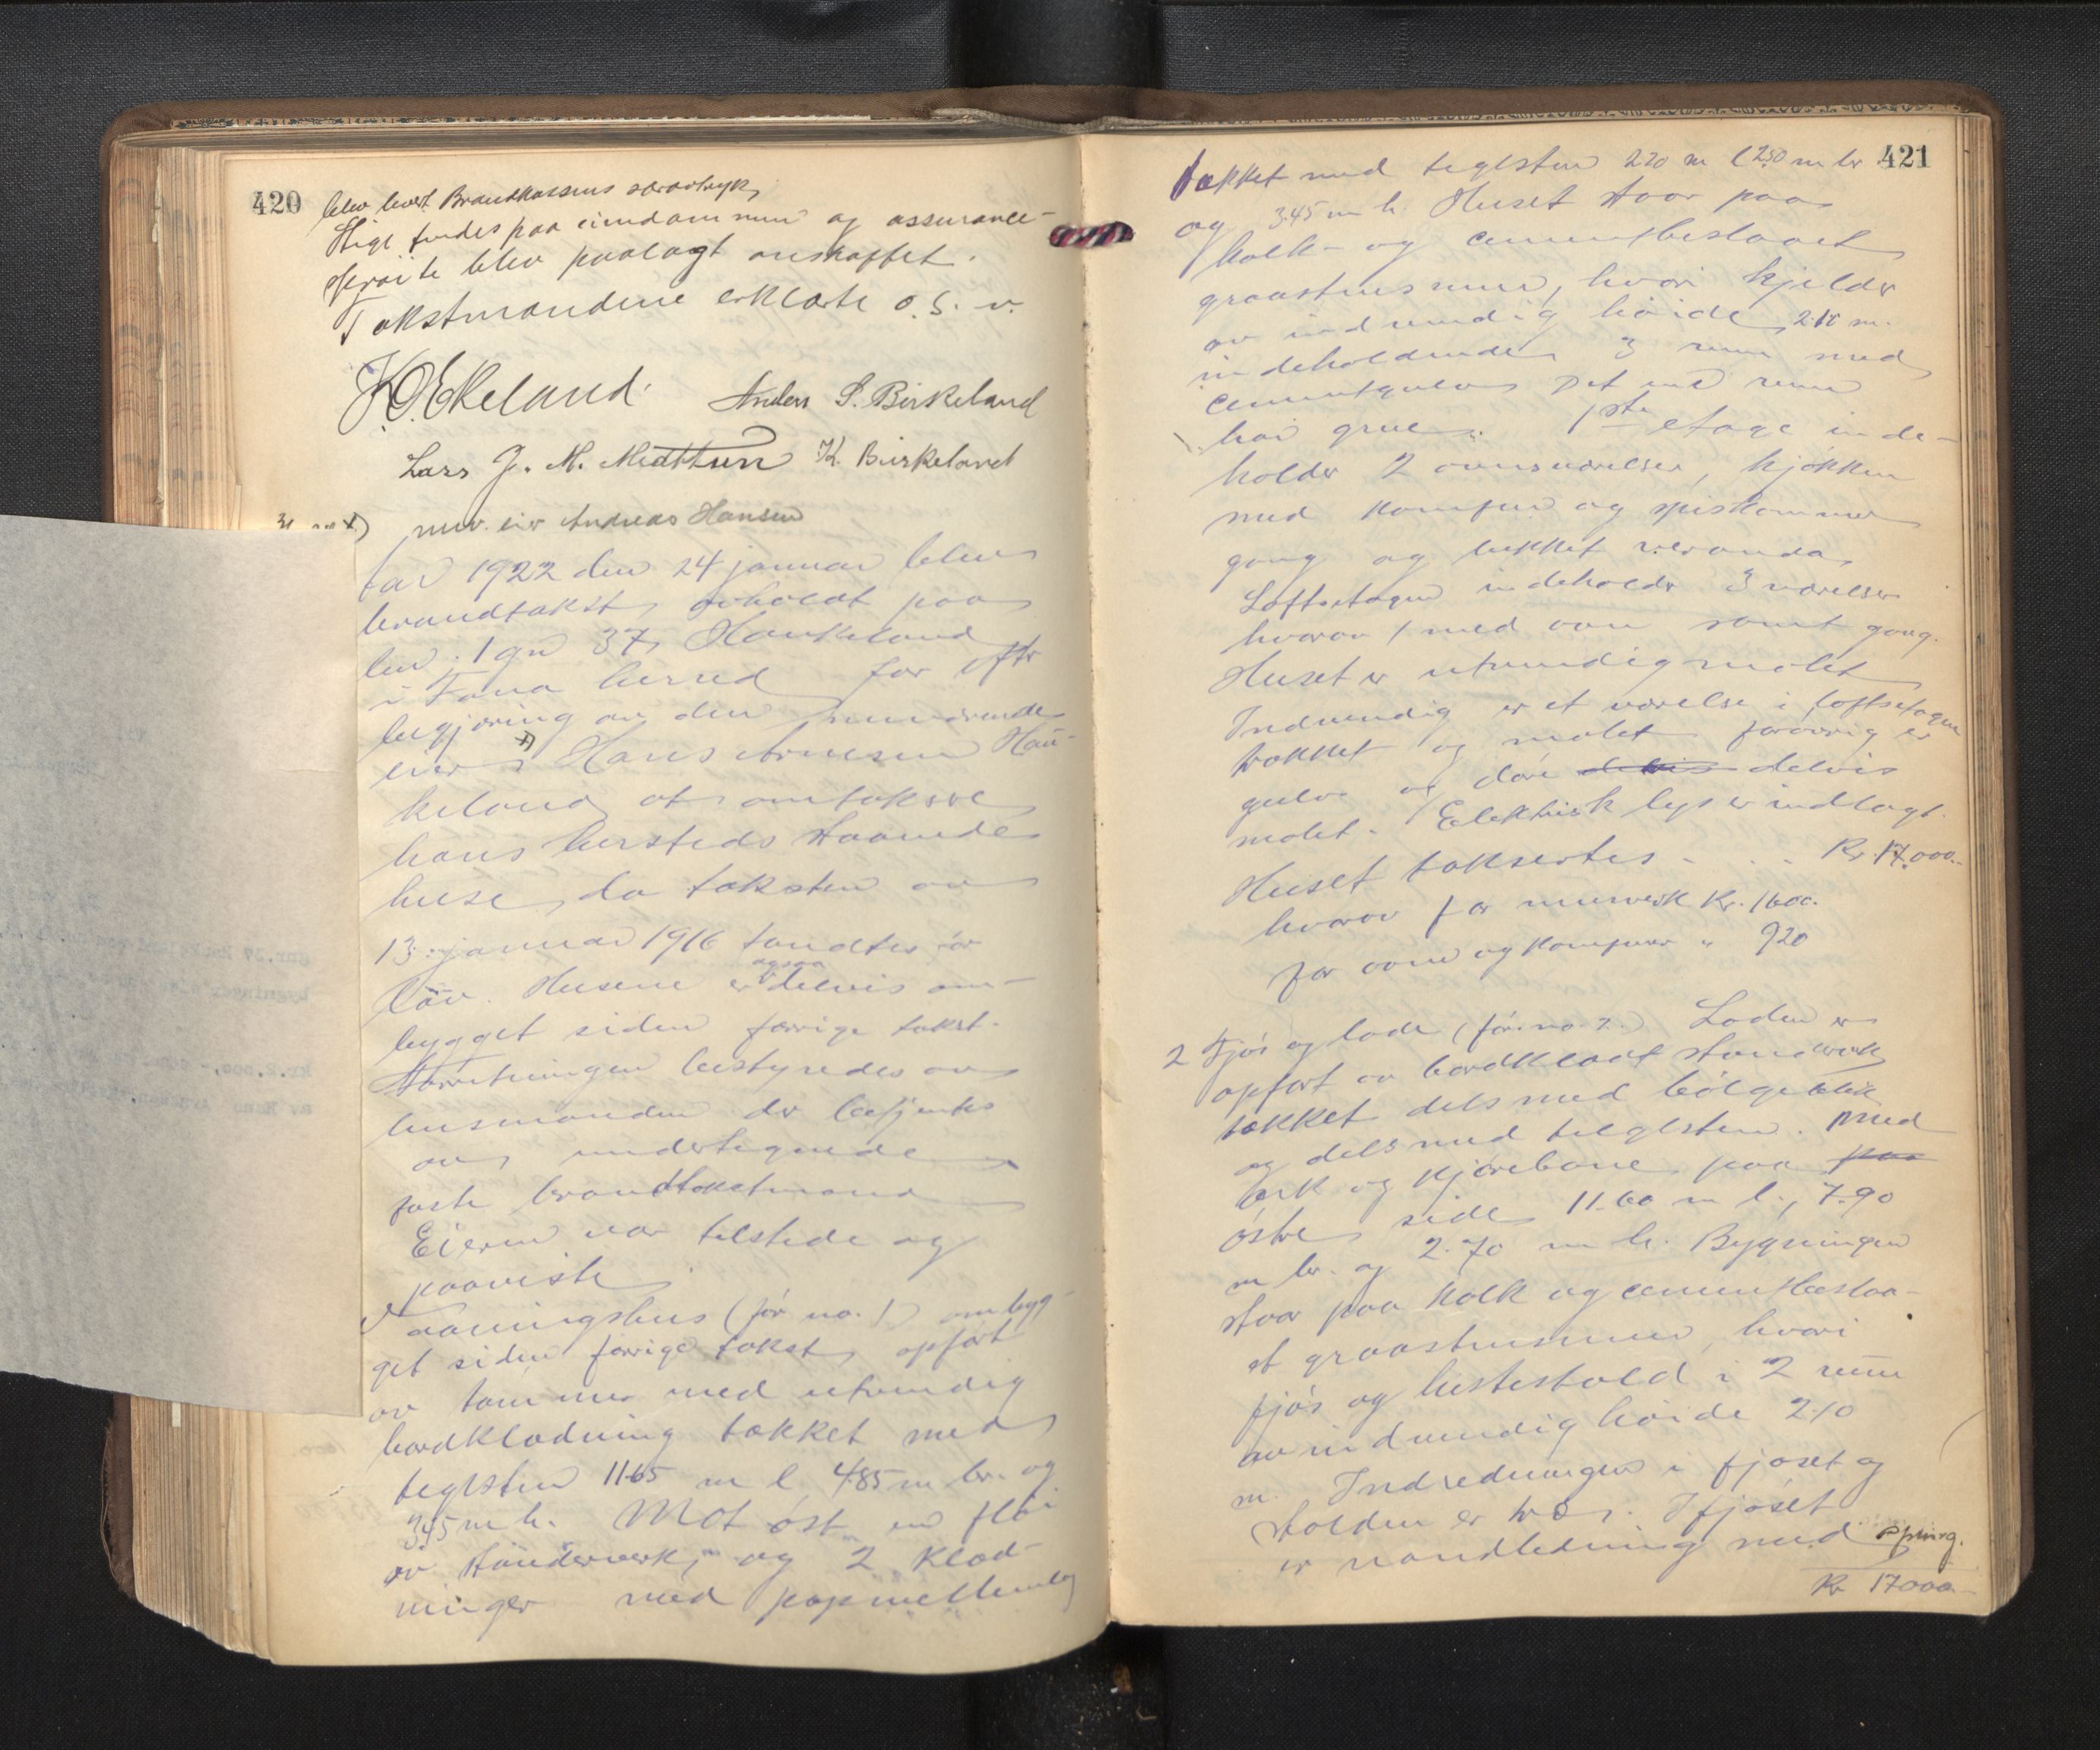 420
blev levert Brandkassens særavtryk,
Stige findes paa eiendommen og assurance-
sprøite blev paalagt anskaffet.
Takstmændene erklærte o.s.v.
K.O. Ekeland. Anders S. Birkeland
Lars J. M. Midttun K. Birkeland
x) nuv. eier Andreas Hansen
Aar 1922 den 24 januar blev
brandtakst avholdt paa
br. 1 gn 37, Haukeland
i Fana herred for efter
begjæring av den nuværende
eier x) Hans Arnesen Hau-
keland at omtaksere
hans hersteds staaende
huse, da taksten av
13. januar 1916 fandtes for
lav. Husene er ogsaa delvis om-
bygget siden forrige takst.
Forretningen bestyredes av
lensmanden der betjentes
av undertegnede
faste brandtakstmænd
Eieren var tilstede og
paaviste.
Vaaningshus (før no. 1) ombyg-
get siden forrige takst, opført
av tømmer med utvendig
bordklædning tækket med
teglsten 11.65 m l. 4.85 m br. og
3.45 m h. Mot øst en fløi
av stænderverk, og 2 klæd-
ninger med papmellemlæg
421
tækket med teglsten 2.20 m l 2.50 m br
og 3.45 m h. Huset staar paa
kalk- og cementbeslaaet
graastensmur, hvori kjelder
av indvendig høide 2.15 m.
indeholdende 3 rum med
cementgulv. Det ene rum
har grue. 1ste etage inde-
holder 2 ovnsværelser, kjøkken
med komfur og spiskammer
gang og lukket veranda,
Loftsetagen indeholder 3 værelser
hvorav 1 med ovn samt gang.
Huset er utvendig malet
Indvendig er et værelse i loftsetagen
trækket og malet forøvrig er
gulve og døre delvis delvis
malet. Elektrisk lys er indlagt.
Huset taksertes - . . Kr. 17.000.-
hvorav for murverk Kr. 1600.
for ovne og komfurer " 920
2 Fjøs og lade (før no. 2.) Laden er
opført av bordklædt stenderverk
tækket dels med bølgeblik
og dels med teglsten. med
ark og kjørebane paa paa
østre side 11.60 m l., 7.90
m br. og 2.70 m h. Bygningen
staar paa kalk og cementbeslaa-
et graastensmur, hvori
fjøs og hestestald i 2 rum
av indvendig høide 2.10
m. Indredningen i fjøset og
stalden er træ. I fjøset
er vandledning med spring.
Kr 17000.-